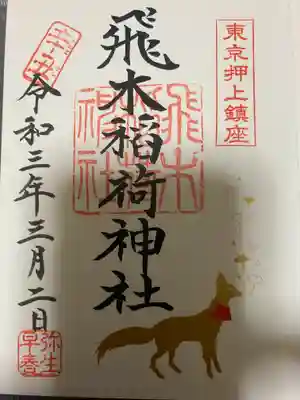 東京押上鎮座
飛木稲荷神社
飛木
神社
辛丑
令和三年三月二日
弥生
早春